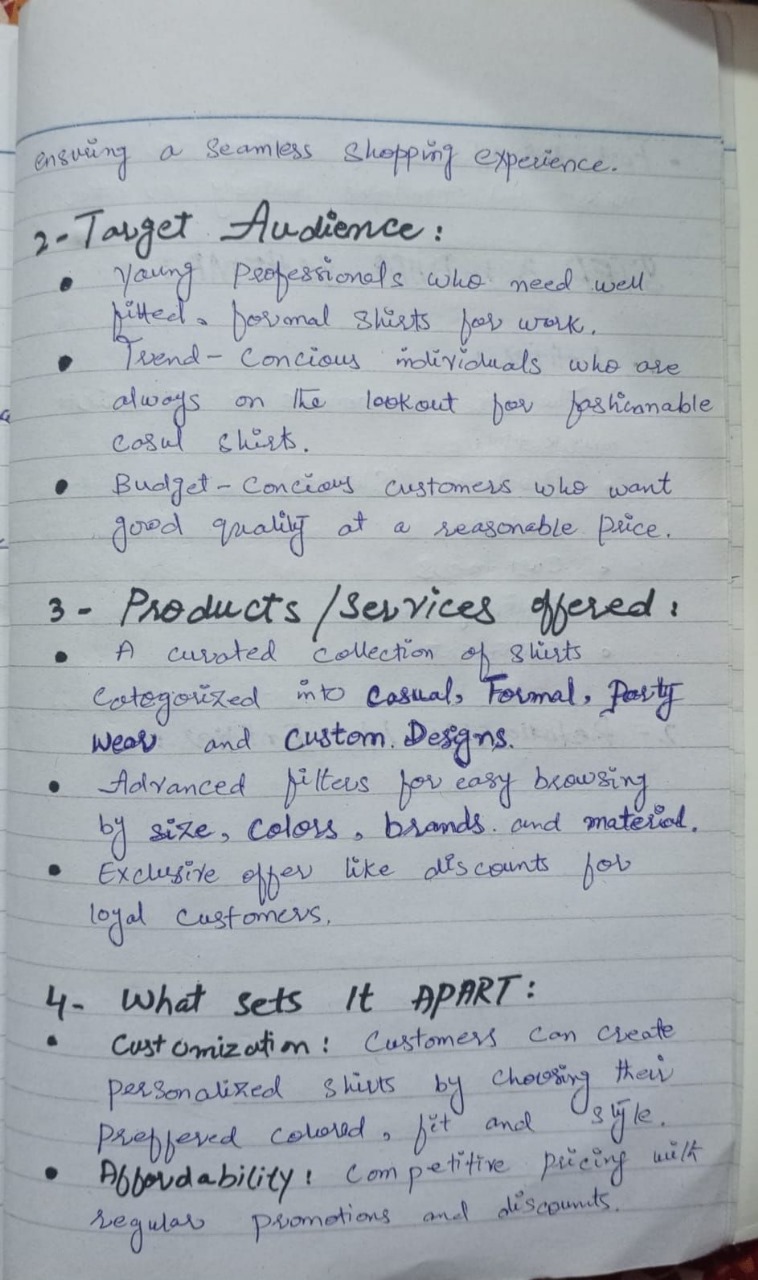 ensuring a seamless shopping experience.
2- Target Audience:
• Young professionals who need well
fitted, formal shirts for work.
• Trend-Concious individuals who are
always on the lookout for fashionnable
casul shirts.
• Budget-Concious customers who want
good quality at a reasonable price.
3- Products/Services offered:
• A curated collection of shirts
categorized into Casual, Formal, Party
wear and Custom Designs.
• Advanced filters for easy browsing
by size, colors, brands and material.
• Exclusive offer like discounts for
loyal customers.
4- What sets It APART:
• Customization: Customers can create
personalized shirts by choosing their
preffered colored, fit and style.
• Affordability: Competitive pricing with
regular promotions and discounts.